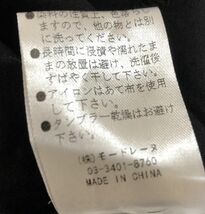 ●染料の性質上、色落ち
ますので、他の物とは別
に洗ってください。
●長時間に浸漬や濡れたま
まの放置は避け、洗濯後
すばやく干して下さい。
●アイロンはあて布を使用
して下さい。
●タンブラー乾燥はお避け
下さい。
(株)モードレーヌ
03-3401-8760
MADE IN CHINA